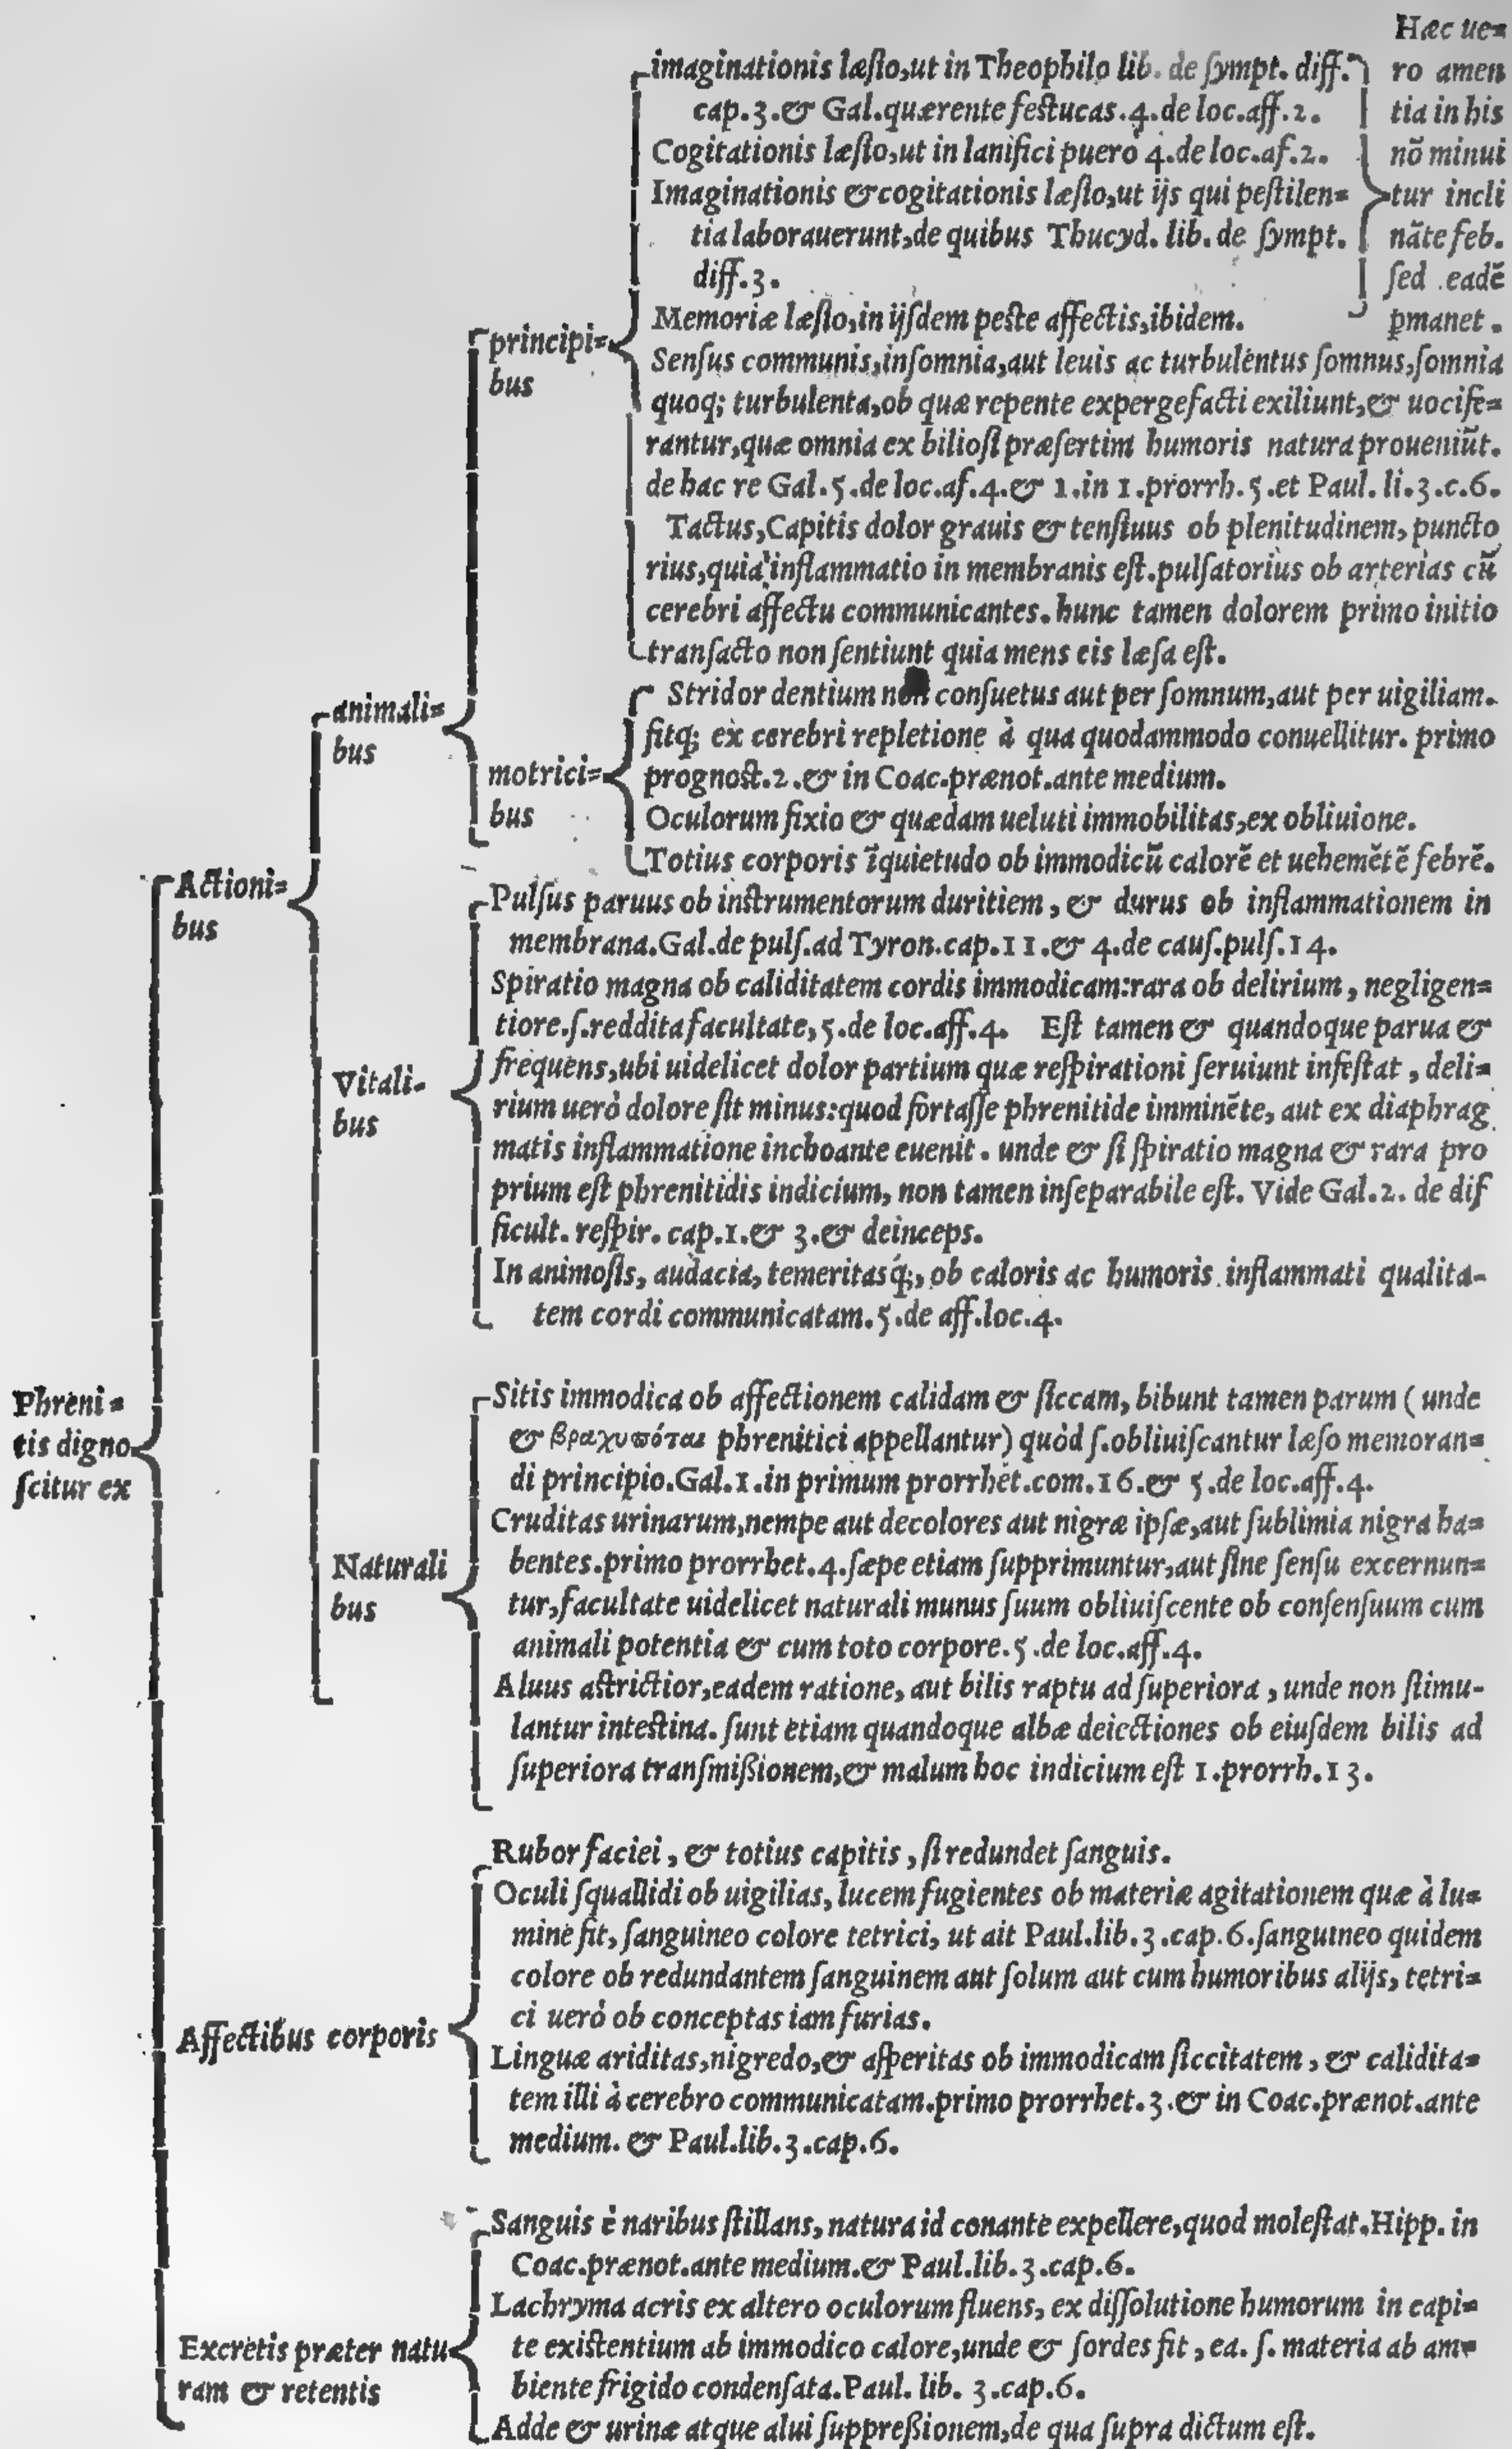 Hæc ue=
ro amen
tia in his
nõ minui
tur incli
nãte feb.
ſed eadẽ
ꝑmanet.
imaginationis læſio,ut in Theophilo lib. de ſympt. diff.
cap.3.& Gal.quærente feſtucas.4.de loc.aff.2.
Cogitationis læſio,ut in lanifici puero 4.de loc.af.2.
Imaginationis & cogitationis læſio,ut ijs qui peſtilen=
tia laborauerunt,de quibus Thucyd. lib. de ſympt.
diff.3.
Memoriæ læſio,in ijſdem peſte affectis,ibidem.
principi=
bus
Senſus communis,inſomnia,aut leuis ac turbulentus ſomnus,ſomnia
quoq; turbulenta,ob quæ repente expergefacti exiliunt,& uocife=
rantur,quæ omnia ex bilioſi præſertim humoris natura proueniũt.
de hac re Gal.5.de loc.af.4.& 1.in 1.prorrh.5.et Paul. li.3.c.6.
Tactus,Capitis dolor grauis & tenſiuus ob plenitudinem, puncto
rius,quia inflammatio in membranis eſt.pulſatorius ob arterias cũ
cerebri affectu communicantes. hunc tamen dolorem primo initio
tranſacto non ſentiunt quia mens eis læſa eſt.
animali=
bus
motrici=
bus
Stridor dentium non conſuetus aut per ſomnum,aut per uigiliam.
fitq; ex cerebri repletione à qua quodammodo conuellitur. primo
prognoſt.2.& in Coac.prænot.ante medium.
Oculorum fixio & quædam ueluti immobilitas,ex obliuione.
Totius corporis ĩquietudo ob immodicũ calorẽ et uehemẽtẽ febrẽ.
Actioni=
bus
Pulſus paruus ob inſtrumentorum duritiem, & durus ob inflammationem in
membrana.Gal.de pulſ.ad Tyron.cap.11.& 4.de cauſ.pulſ.14.
Spiratio magna ob caliditatem cordis immodicam:rara ob delirium, negligen=
tiore.ſ.reddita facultate, 5.de loc.aff.4. Eſt tamen & quandoque parua &
frequens,ubi uidelicet dolor partium quæ reſpirationi ſeruiunt infeſtat, deli=
rium uerò dolore ſit minus:quod fortaſſe phrenitide imminẽte, aut ex diaphrag
matis inflammatione inchoante euenit. unde & ſi ſpiratio magna & rara pro
prium eſt phrenitidis indicium, non tamen inſeparabile eſt. Vide Gal.2. de dif
ficult. reſpir. cap.1.& 3.& deinceps.
In animoſis, audacia, temeritasq́;, ob caloris ac humoris inflammati qualita-
tem cordi communicatam.5.de aff.loc.4.
Vitali-
bus
Phreni=
tis digno
ſcitur ex
Sitis immodica ob affectionem calidam & ſiccam, bibunt tamen parum (unde
& βραχυπόται phrenitici appellantur) quòd ſ.obliuiſcantur læſo memoran=
di principio.Gal.1.in primum prorrhet.com.16.& 5.de loc.aff.4.
Cruditas urinarum,nempe aut decolores aut nigræ ipſæ,aut ſublimia nigra ha=
bentes.primo prorrhet.4.ſæpe etiam ſupprimuntur,aut ſine ſenſu excernun=
tur,facultate uidelicet naturali munus ſuum obliuiſcente ob conſenſuum cum
animali potentia & cum toto corpore.5.de loc.aff.4.
Aluus aſtrictior,eadem ratione, aut bilis raptu ad ſuperiora, unde non ſtimu-
lantur inteſtina. ſunt etiam quandoque albæ deiectiones ob eiuſdem bilis ad
ſuperiora tranſmißionem,& malum hoc indicium eſt 1.prorrh.13.
Naturali
bus
Rubor faciei, & totius capitis, ſi redundet ſanguis.
Oculi ſquallidi ob uigilias, lucem fugientes ob materiæ agitationem quæ à lu=
mine fit, ſanguineo colore tetrici, ut ait Paul.lib.3.cap.6.ſanguineo quidem
colore ob redundantem ſanguinem aut ſolum aut cum humoribus alijs, tetri=
ci uerò ob conceptas iam furias.
Linguæ ariditas,nigredo,& aſperitas ob immodicam ſiccitatem, & calidita=
tem illi à cerebro communicatam.primo prorrhet.3.& in Coac.prænot.ante
medium. & Paul.lib.3.cap.6.
Affectibus corporis
Sanguis è naribus ſtillans, natura id conante expellere,quod moleſtat.Hipp. in
Coac.prænot.ante medium.& Paul.lib.3.cap.6.
Lachryma acris ex altero oculorum fluens, ex diſſolutione humorum in capi=
te exiſtentium ab immodico calore,unde & ſordes fit, ea. ſ. materia ab am=
biente frigido condenſata.Paul. lib. 3.cap.6.
Adde & urinæ atque alui ſuppreßionem,de qua ſupra dictum eſt.
Excretis præter natu
ram & retentis